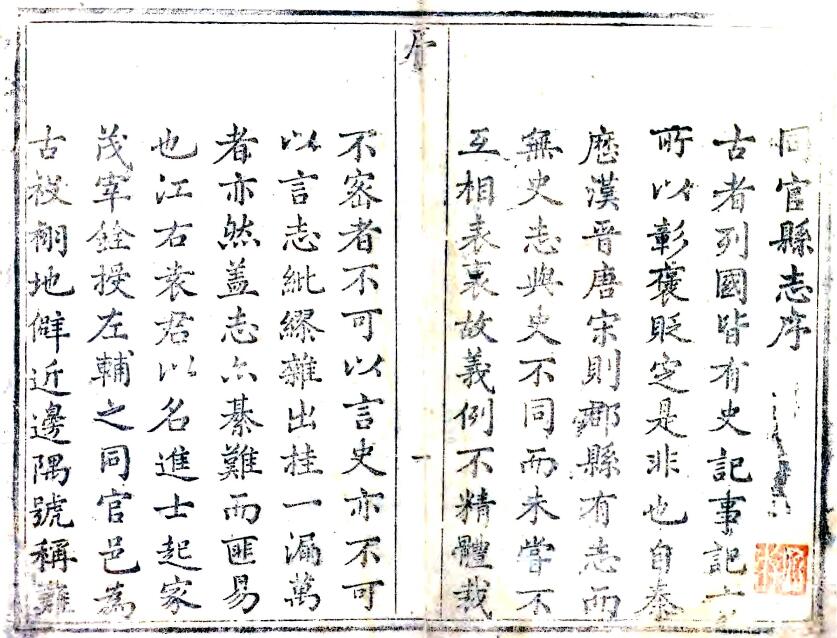 同官縣志序
古者列國皆有史記事記
所以彰褒貶定是非也自秦
歷漢晉唐宋則郡縣有志而
無史志與史不同而未嘗不
互相表裏故義例不精體裁
序
一
不審者不可以言史亦不可
以言志紕繆雜出挂一漏萬
者亦然盖志亦綦難而匪易
也江右袁君以名進士起家
茂宰銓授左輔之同官邑為
古祋祤地僻近邊隅號稱難